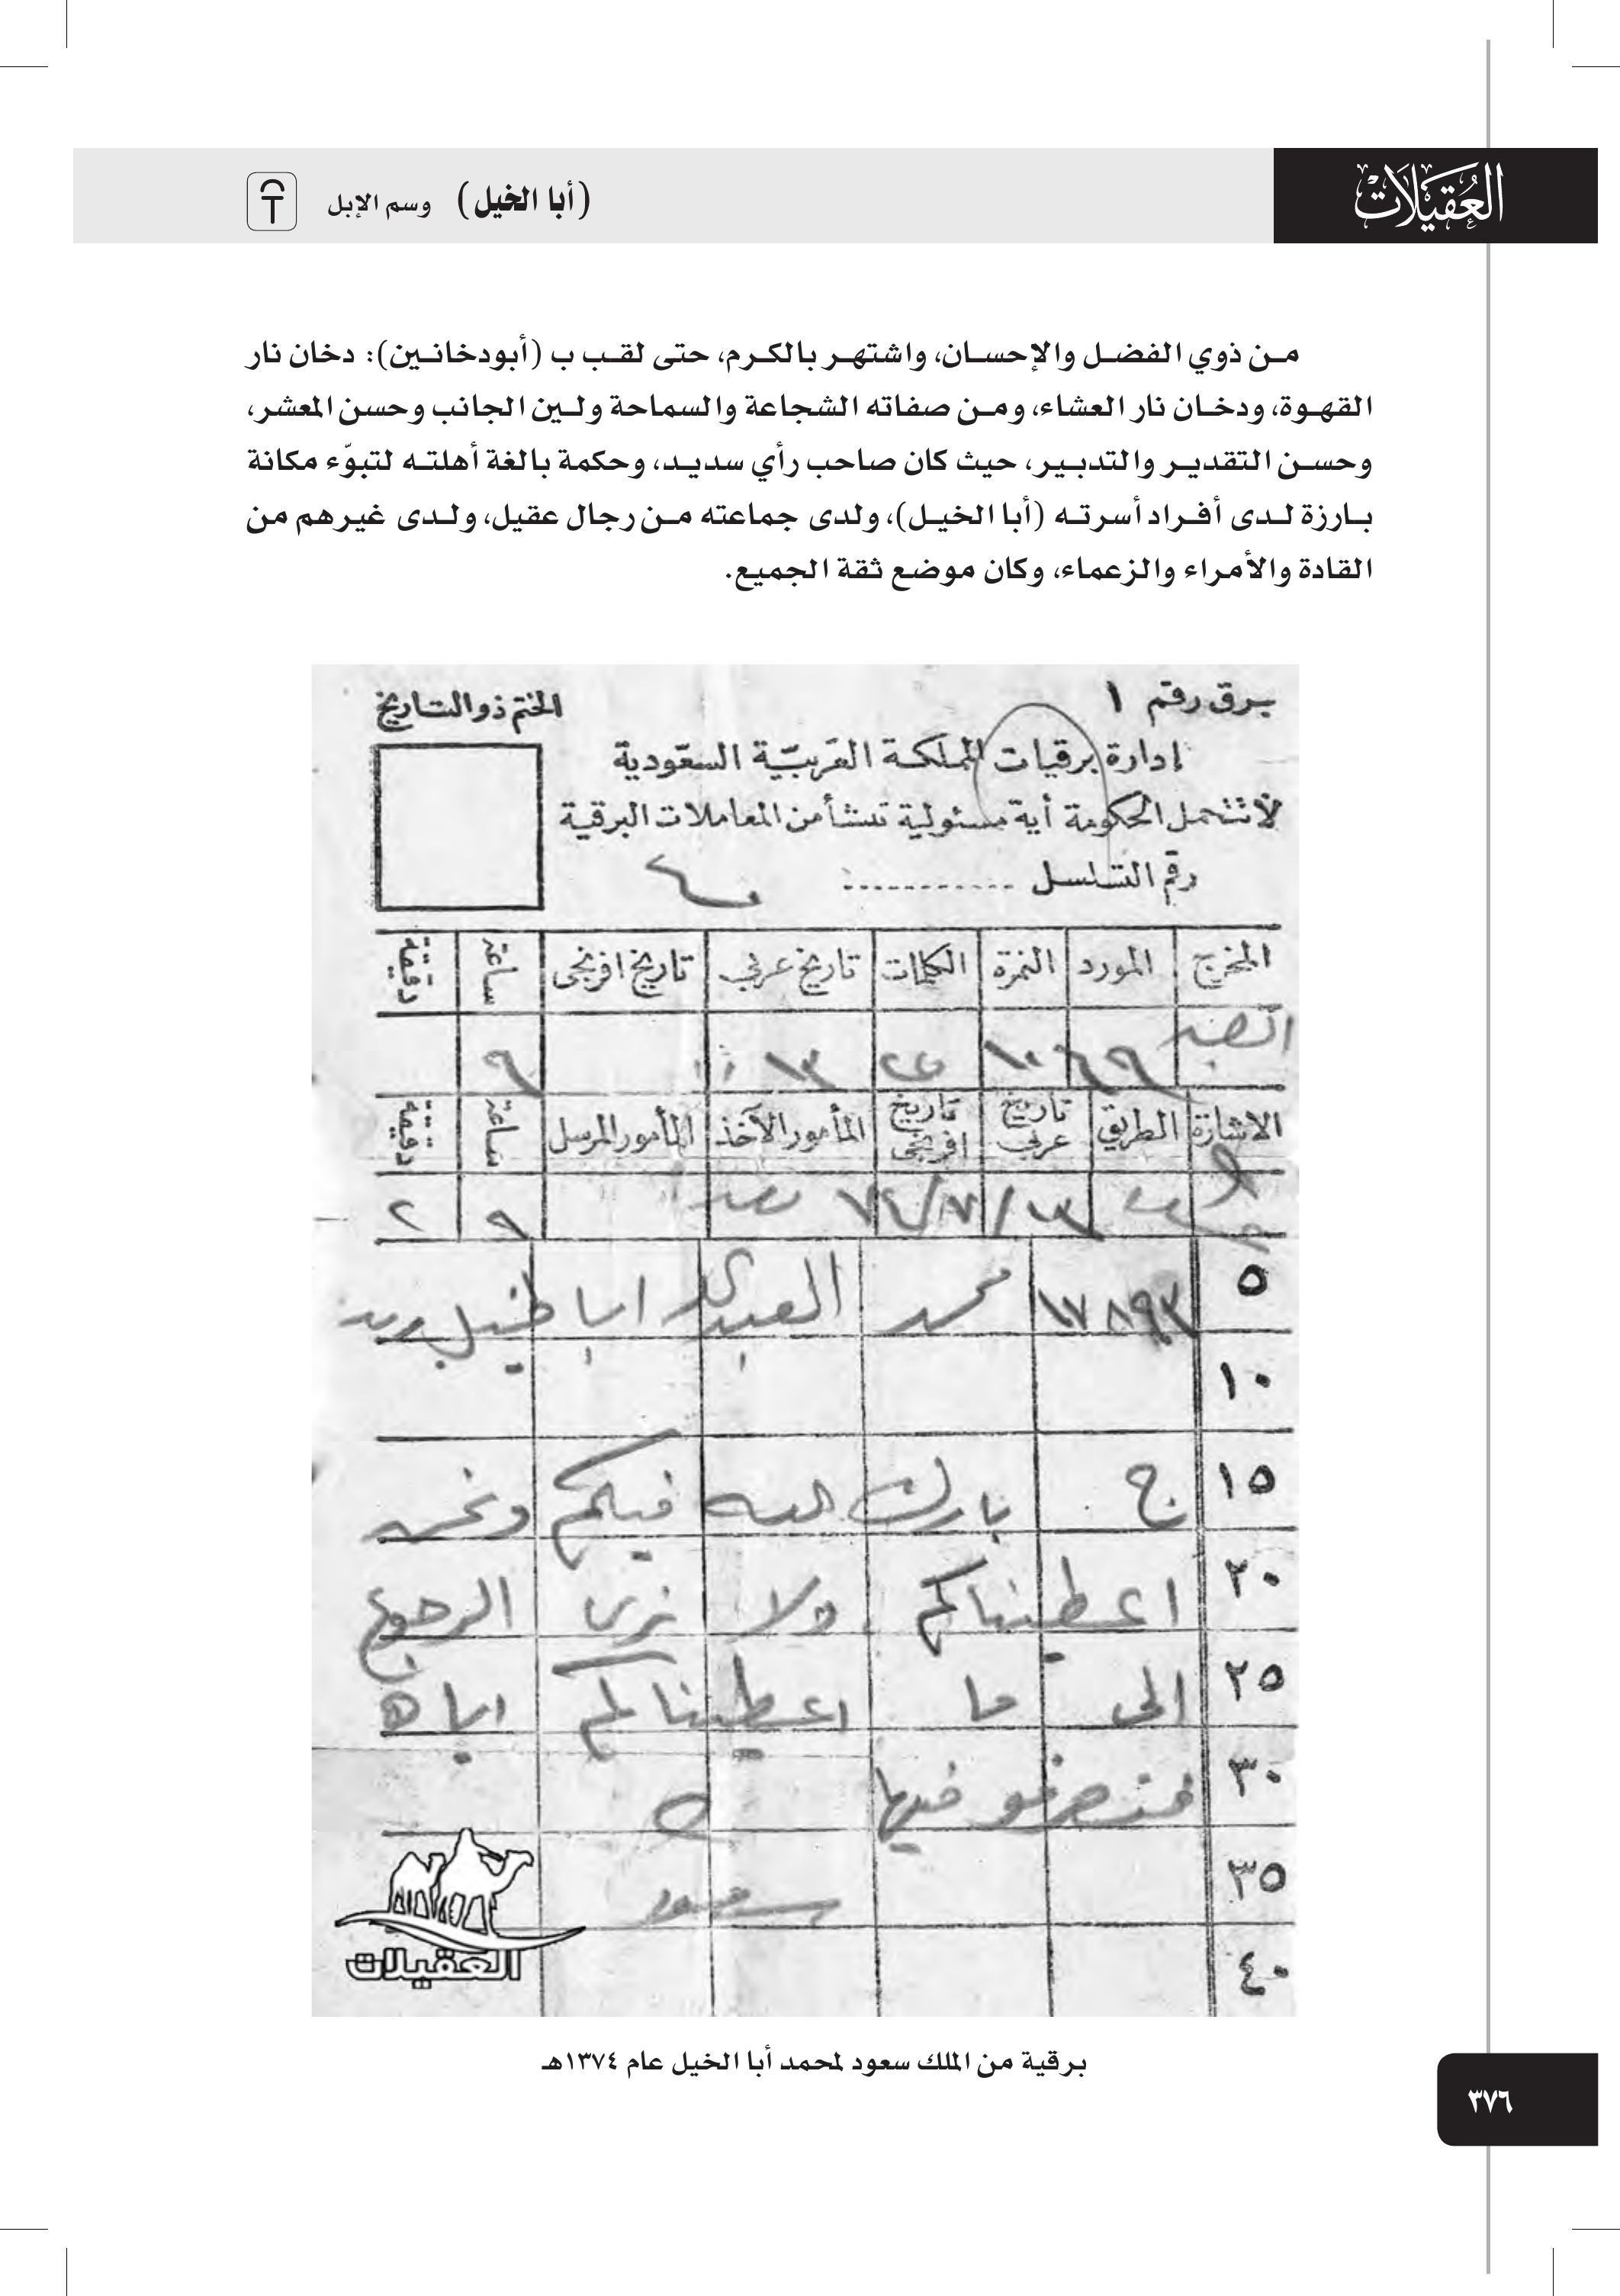 العُقيلات
(أبا الخيل) وسم الإبل
من ذوي الفضل والإحسان، واشتهر بالكرم، حتى لقب ب (أبودخانين): دخان نار
القهوة، ودخان نار العشاء، ومن صفاته الشجاعة والسماحة ولين الجانب وحسن المعشر،
وحسن التقدير والتدبير، حيث كان صاحب رأي سديد، وحكمة بالغة أهلته لتبوّء مكانة
بارزة لدى أفراد أسرته (أبا الخيل)، ولدى جماعته من رجال عقيل، ولدى غيرهم من
القادة والأمراء والزعماء، وكان موضع ثقة الجميع.
برق رقم ١
الختم ذو التاريخ
إدارة برقيات المملكة العربيّة السعّودية
لا تتحمل الحكومة أية مسئولية تنشأ من المعاملات البرقية
رقم التسلسل ............
المخرج المورد النمرة الكلمات تاريخ عربي تاريخ افرنجى ساعة دقيقة
١٣ ٩
الاشارة الطريق تاريخ عربي تاريخ افرنجى المأمور الآخذ المأمور المرسل ساعة دقيقة
١٣/٧/٧٤ ٩ ٢
٥ ١٧٨٩٣ محمد العبدالله ابا الخيل بريده
١٠
١٥ ج بارك الله فيكم ونحن
٢٠ اعطيناكم ولا نرى الرجوع
٢٥ الى ما اعطيناكم اياه
٣٠ فتصرفو فيها
٣٥ سعود
٤٠
العقيلات
برقية من الملك سعود لمحمد أبا الخيل عام ١٣٧٤هـ
٣٧٦